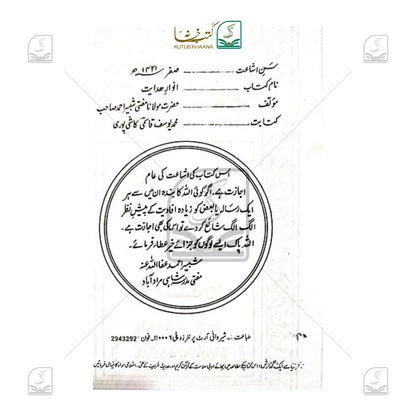 کتب خانہ
KUTUB KHAANA
سن اشاعت ـــــــ صفر ۱۴۲۱ھ
نام کتاب ـــــــ انوار ہدایت
مؤلف ـــــــ حضرت مولانا مفتی شبیر احمد صاحب
کتابت ـــــــ محمد یوسف قاسمی کاشی پوری
اس کتاب کی اشاعت کی عام
اجازت ہے۔ اگر کوئی اللہ کا بندہ ان میں سے ہر
ایک رسالہ یا بعض کو زیادہ افادیت کے پیش نظر
الگ الگ شائع کر دے تو اس کی بھی اجازت ہے۔
اللہ پاک ایسے لوگوں کو جزائے خیر عطار فرمائے۔
شبیر احمد عفا اللہ عنہ
مفتی مدرسہ شاہی مرادآباد
طباعت ۔۔ شیروانی آرٹ پرنٹرز دہلی ۱۱۰۰۰۶۔ فون ۔ 2943292